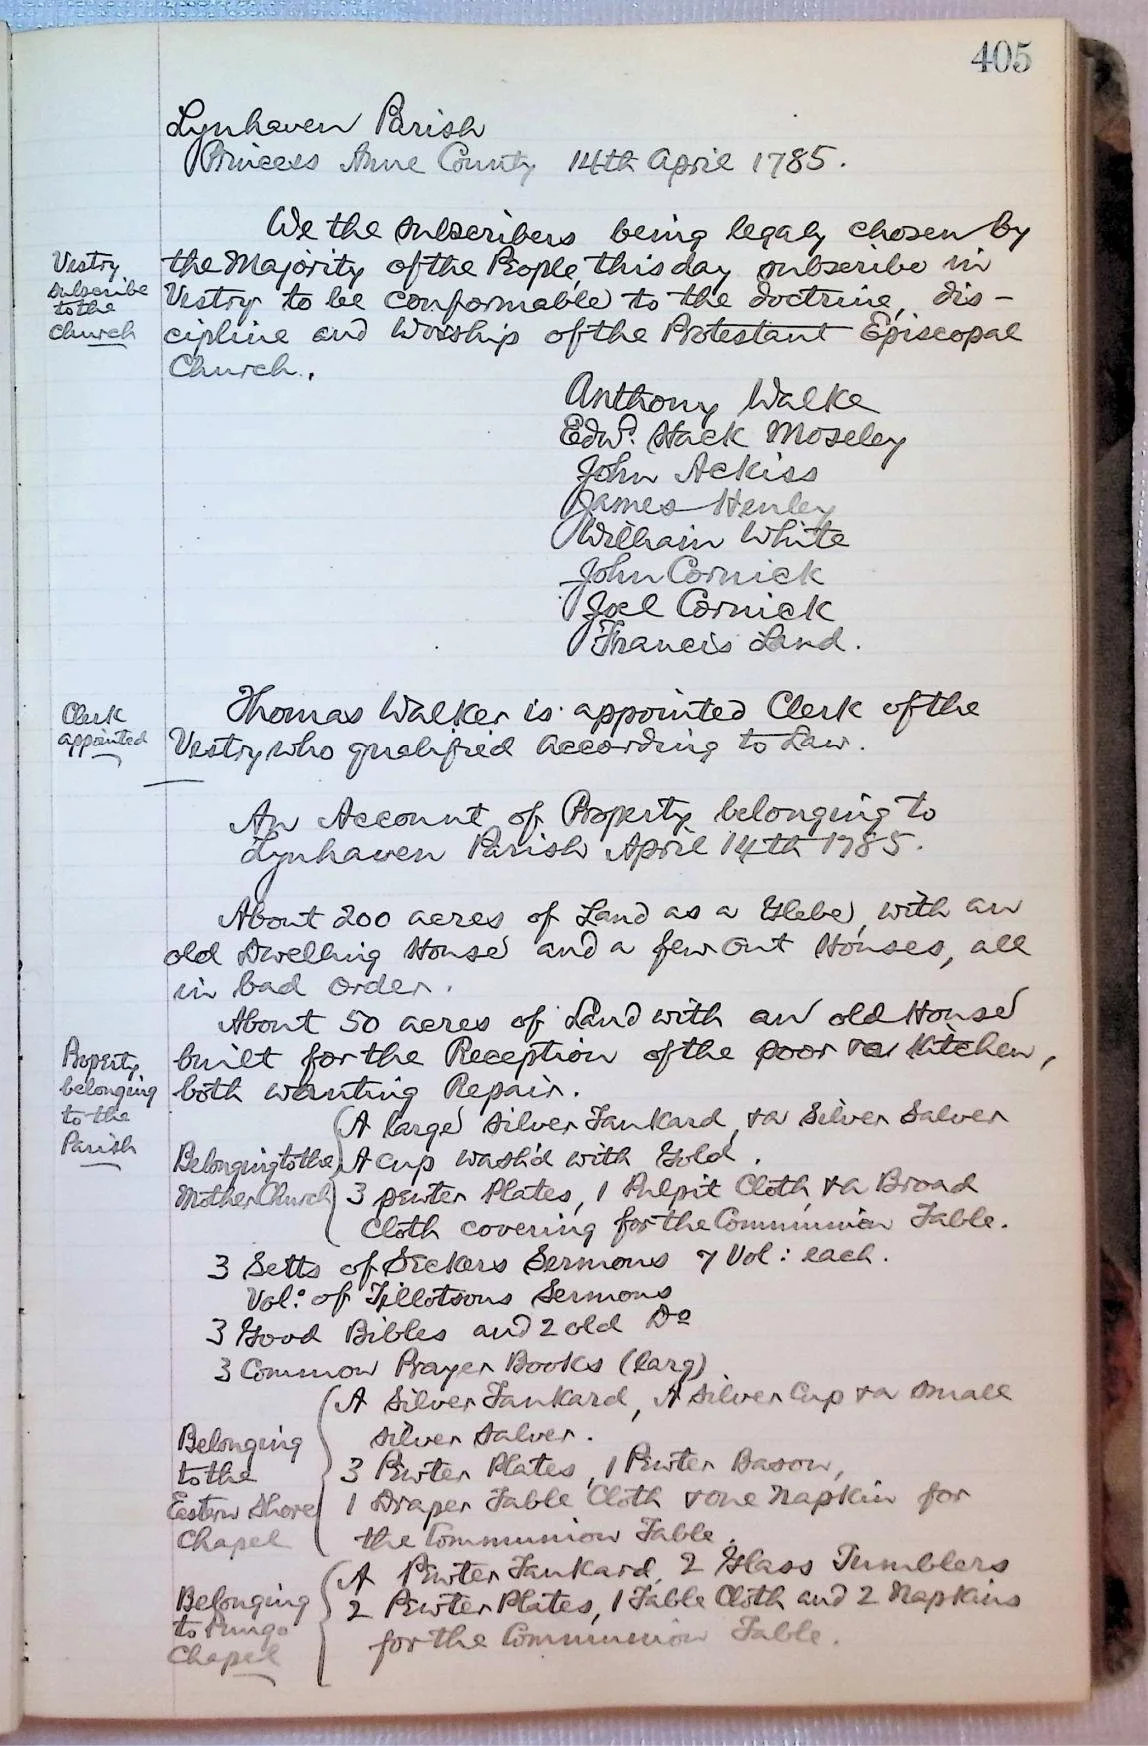 405
Lynhaven Parish
Princess Anne County 14th April 1785.
We the subscribers being legaly chosen by
Vestry
subscribe
to the
Church
the Majority of the People, this day subscribe in
Vestry to be conformable to the doctrine, dis-
cipline and Worship of the Protestant Episcopal
Church.
Anthony Walke
Edwd. Hack Moseley
John Ackiss
James Henley
William White
John Cornick
Joel Cornick
Francis Land.
Clerk
appointed
Thomas Walker is appointed Clerk of the
Vestry who qualified according to Law.
An Account of Property belonging to
Lynhaven Parish April 14th 1785.
About 200 acres of Land as a Glebe, with an
old Dwelling House and a few Out Houses, all
in bad order.
About 50 acres of Land with an old House
Property
belonging
to the
Parish
built for the Reception of the poor & a Kitchen,
both wanting Repair.
Belonging to the
Mother Church
A large silver Tankard, & a Silver Salver
A Cup wash'd with Gold.
3 pewter Plates, 1 Pulpit Cloth & a Broad
Cloth covering for the Communion Table.
3 Setts of Seckers Sermons 7 Vol: each.
Vol: of Tillotsons Sermons
3 Good Bibles and 2 old Do
3 Common Prayer Books (larg)
Belonging
to the
Eastern Shore
Chapel
A Silver Tankard, A Silver Cup & a small
silver salver.
3 Pewter Plates, 1 Pewter Bason,
1 Draper Table Cloth & one Napkin for
the Communion Table.
Belonging
to Pungo
Chapel
A Pewter Tankard, 2 Glass Tumblers
2 Pewter Plates, 1 Table Cloth and 2 Napkins
for the Communion Table.